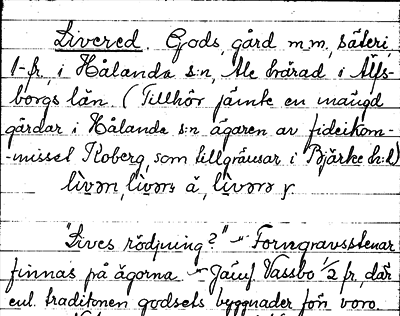 Livered. Gods, gård m.m., säteri,
1-fr, i Hålanda s:n, Ale härad i Älfs-
borgs län. (Tillhör jämte en mängd
gårdar i Hålanda s:n ägaren av fideikom-
-misset Koberg, som tillgränsar i Bjärke h:d)
livən, livərs å,
"Lives rödjning?" - Forngravsstenar
finnas på ägorna. - Jämf Vassbo 1/2 fr, där
enl. traditonen godsets byggnader förr voro